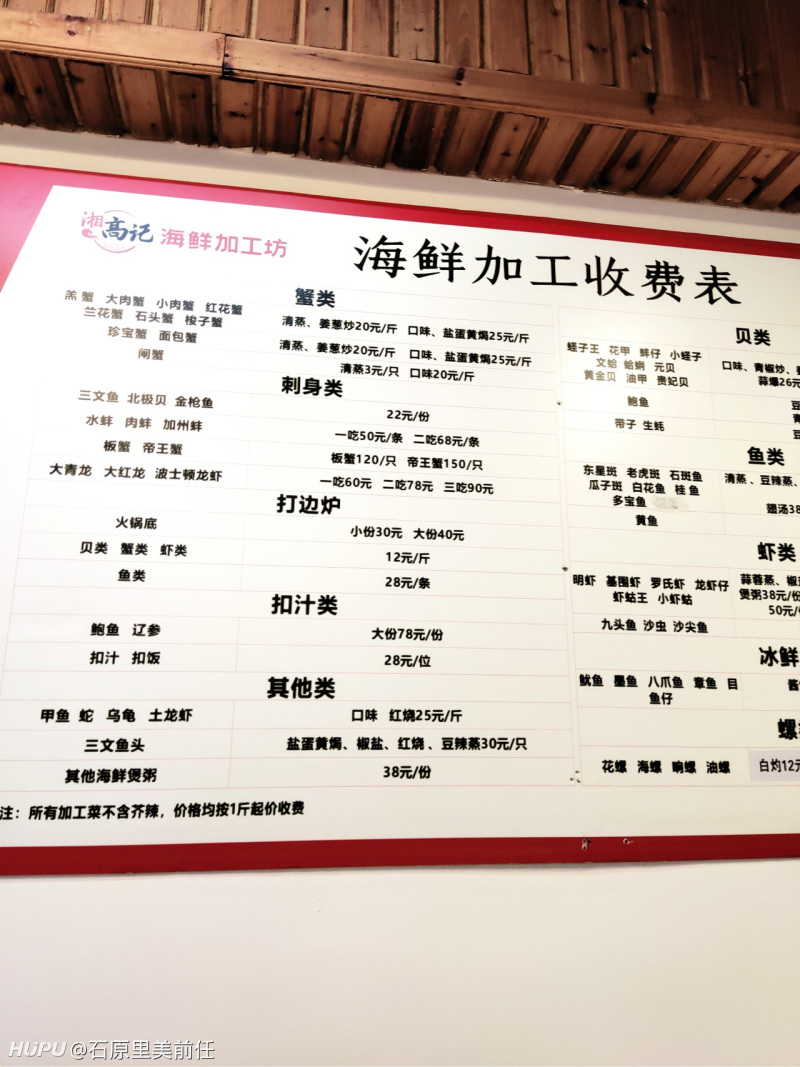 湘高记 海鲜加工坊
海鲜加工收费表
蟹类
羔蟹 大肉蟹 小肉蟹 红花蟹
兰花蟹 石头蟹 梭子蟹
清蒸、姜葱炒20元/斤 口味、盐蛋黄焗25元/斤
珍宝蟹 面包蟹
清蒸、姜葱炒20元/斤 口味、盐蛋黄焗25元/斤
闸蟹
清蒸3元/只 口味20元/斤
刺身类
三文鱼 北极贝 金枪鱼
22元/份
水蚌 肉蚌 加州蚌
一吃50元/条 二吃68元/条
板蟹 帝王蟹
板蟹120/只 帝王蟹150/只
大青龙 大红龙 波士顿龙虾
一吃60元 二吃78元 三吃90元
打边炉
火锅底
小份30元 大份40元
贝类 蟹类 虾类
12元/斤
鱼类
28元/条
扣汁类
鲍鱼 辽参
大份78元/份
扣汁 扣饭
28元/位
其他类
甲鱼 蛇 乌龟 土龙虾
口味 红烧25元/斤
三文鱼头
盐蛋黄焗、椒盐、红烧、豆辣蒸30元/只
其他海鲜煲粥
38元/份
注：所有加工菜不含芥辣，价格均按1斤起价收费
贝类
蛏子王 花甲 蚌仔 小蛏子
文蛤 蛤蜊 元贝
黄金贝 油甲 贵妃贝
口味、青椒炒、
蒜爆26元
鲍鱼
豆
带子 生蚝
豆
鱼类
东星斑 老虎斑 石斑鱼
瓜子斑 白花鱼 桂鱼
多宝鱼
清蒸、豆辣蒸、
黄鱼
翅汤38
虾类
明虾 基围虾 罗氏虾 龙虾仔
虾蛄王 小虾蛄
蒜蓉蒸、椒
煲粥38元/份
50元/
九头鱼 沙虫 沙尖鱼
冰鲜
鱿鱼 墨鱼 八爪鱼 章鱼 目
鱼仔
酱
螺
花螺 海螺 响螺 油螺
白灼12元
HUPU @石原里美前任